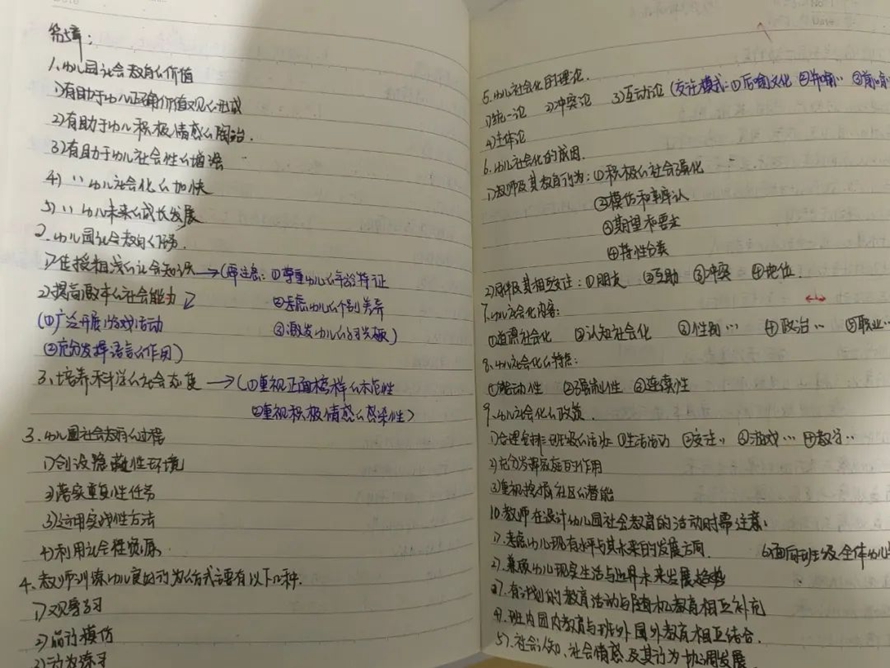 1.幼儿园社会教育么价值
1)有助于幼儿正确价值观么形成
2)有助于幼儿积极情感么陶冶.
3)有助于幼儿社会性么增强
4) 〃 幼儿社会化么加快
5) 〃 幼儿未来么成长发展
2.幼儿园社会教育么任务.
→(需注意:①尊重幼儿么年龄特征
2)提高基本么社会能力
②考虑幼儿么个别差异
(①广泛开展么游戏活动
③激发幼儿么兴趣)
(②充分发挥语言么作用)
3.培养科学么社会态度 →(①重视正面榜样么示范性
②重视积极情感么感染性)
3.幼儿园社会教育么过程
1)创设隐蔽性环境
2)落实重复性任务
3)运用实践性方法
4)利用社会性资源.
4.教师训练幼儿良好行为么方式主要有以下几种.
1)观察学习
2)品行模仿
3)行为练习
5.幼儿社会化的理论.
1)统一论 2)冲突论 3)互动论(交往模式:①后喻文化 ②并喻〃 ③前喻
4)主体论
6.幼儿社会化的成因.
1)教师及其教育行为:①积极么社会强化
②模仿和
③期望和要求
2)同伴及其相互交往:①朋友 ②互助 ③冲突 ④地位
7.幼儿社会化内容:
①道德社会化 ②认知社会化 ③性别… ④政治… ⑤职业…
8.幼儿社会化么特点:
①能动性 ②强制性 ③连续性
9.幼儿社会化么政策.
1)合理安排班级么活动 ①生活活动 ②交往〃 ③游戏… ④教学…
2)充分发挥家庭的作用
3)重视挖掘社区么潜能
10.教师在设计幼儿园社会教育的活动时需注意:
1).考虑幼儿现有水平与其未来的发展方向. 6)面向班级全体幼儿
2).兼顾幼儿现实生活与世界未来发展趋势
3).有计划的教育活动与随机教育相互补充
4).班内园内教育与班外园外教育相互结合.
5).社会认知、社会情感及其行为协调发展